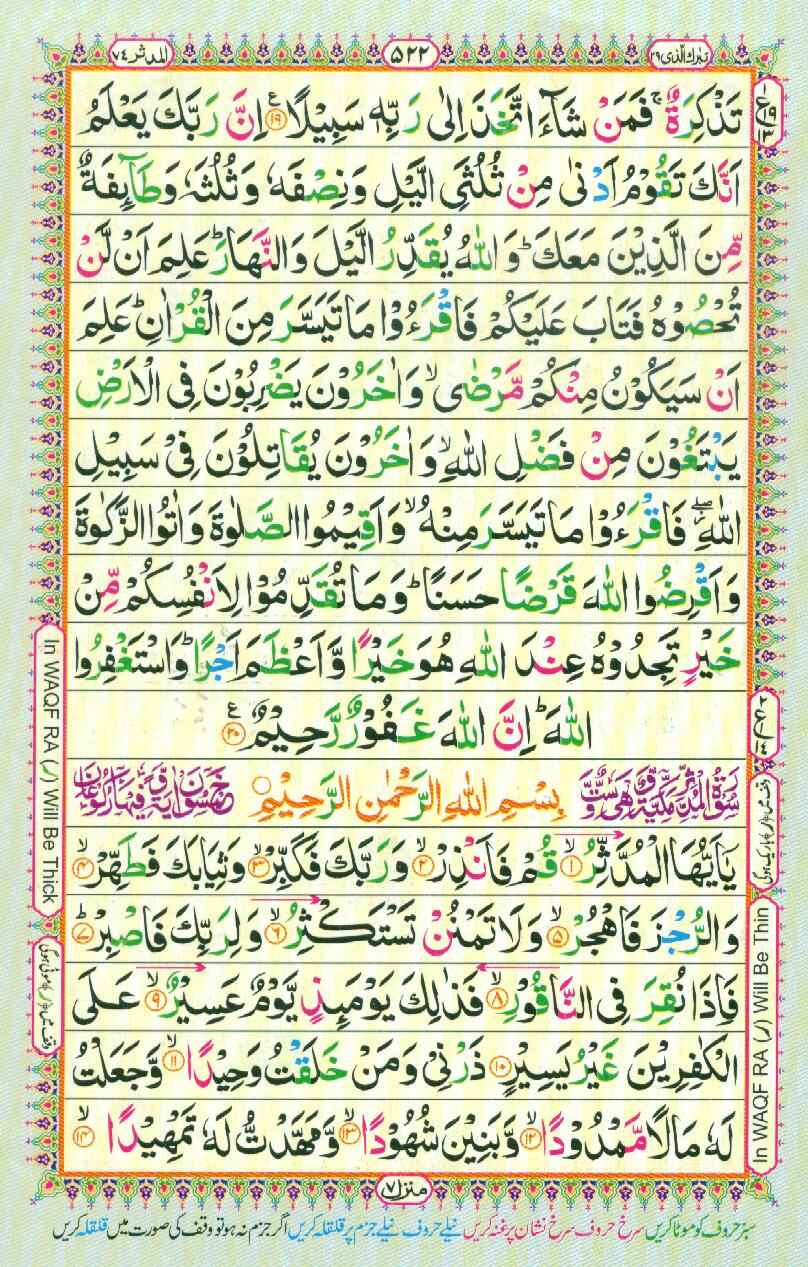 المدثر ۷۴
۵۲۲
تبرك الّذی ۲۹
تَذْكِرَةٌ ۚ فَمَنْ شَآءَ اتَّخَذَ اِلٰى رَبِّهٖ سَبِيْلًا ﴿۱۹﴾ اِنَّ رَبَّكَ يَعْلَمُ
اَنَّكَ تَقُوْمُ اَدْنٰى مِنْ ثُلُثَىِ الَّيْلِ وَنِصْفَهٗ وَثُلُثَهٗ وَطَآىِٕفَةٌ
مِّنَ الَّذِيْنَ مَعَكَ ؕ وَاللّٰهُ يُقَدِّرُ الَّيْلَ وَالنَّهَارَ ؕ عَلِمَ اَنْ لَّنْ
تُحْصُوْهُ فَتَابَ عَلَيْكُمْ فَاقْرَءُوْا مَا تَيَسَّرَ مِنَ الْقُرْاٰنِ ؕ عَلِمَ
اَنْ سَيَكُوْنُ مِنْكُمْ مَّرْضٰى ۙ وَاٰخَرُوْنَ يَضْرِبُوْنَ فِى الْاَرْضِ
يَبْتَغُوْنَ مِنْ فَضْلِ اللّٰهِ ۙ وَاٰخَرُوْنَ يُقَاتِلُوْنَ فِىْ سَبِيْلِ
اللّٰهِ ۖ فَاقْرَءُوْا مَا تَيَسَّرَ مِنْهُ ۙ وَاَقِيْمُوا الصَّلٰوةَ وَاٰتُوا الزَّكٰوةَ
وَاَقْرِضُوا اللّٰهَ قَرْضًا حَسَنًا ؕ وَمَا تُقَدِّمُوْا لِاَنْفُسِكُمْ مِّنْ
خَيْرٍ تَجِدُوْهُ عِنْدَ اللّٰهِ هُوَ خَيْرًا وَّاَعْظَمَ اَجْرًا ؕ وَاسْتَغْفِرُوا
اللّٰهَ ؕ اِنَّ اللّٰهَ غَفُوْرٌ رَّحِيْمٌ ﴿۲۰﴾
سُوْرَةُ الْمُدَّثِّرِ مَكِّيَّةٌ وَّهِىَ سِتٌّ وَّ بِسْمِ اللّٰهِ الرَّحْمٰنِ الرَّحِيْمِ خَمْسُوْنَ اٰيَةً وَّفِيْهَا رُكُوْعَانِ
يٰۤاَيُّهَا الْمُدَّثِّرُ ﴿۱﴾ قُمْ فَاَنْذِرْ ﴿۲﴾ وَرَبَّكَ فَكَبِّرْ ﴿۳﴾ وَثِيَابَكَ فَطَهِّرْ ﴿۴﴾
وَالرُّجْزَ فَاهْجُرْ ﴿۵﴾ وَلَا تَمْنُنْ تَسْتَكْثِرُ ﴿۶﴾ وَلِرَبِّكَ فَاصْبِرْ ﴿۷﴾
فَاِذَا نُقِرَ فِى النَّاقُوْرِ ﴿۸﴾ فَذٰلِكَ يَوْمَىِٕذٍ يَّوْمٌ عَسِيْرٌ ﴿۹﴾ عَلَى
الْكٰفِرِيْنَ غَيْرُ يَسِيْرٍ ﴿۱۰﴾ ذَرْنِىْ وَمَنْ خَلَقْتُ وَحِيْدًا ﴿۱۱﴾ وَّجَعَلْتُ
لَهٗ مَالًا مَّمْدُوْدًا ﴿۱۲﴾ وَّبَنِيْنَ شُهُوْدًا ﴿۱۳﴾ وَّمَهَّدْتُّ لَهٗ تَمْهِيْدًا ﴿۱۴﴾
منزل ۷
In WAQF RA (ر) Will Be Thick
وقف میں ﴿ر﴾ موٹی ہوگی
وقف میں ﴿ر﴾ باریک ہوگی
In WAQF RA (ر) Will Be Thin
سبز حروف کو موٹا کریں سرخ حروف سرخ نشان پر غنہ کریں نیلے حروف نیلے جزم پر قلقلہ کریں اگر جزم نہ ہو تو وقف کی صورت میں قلقلہ کریں